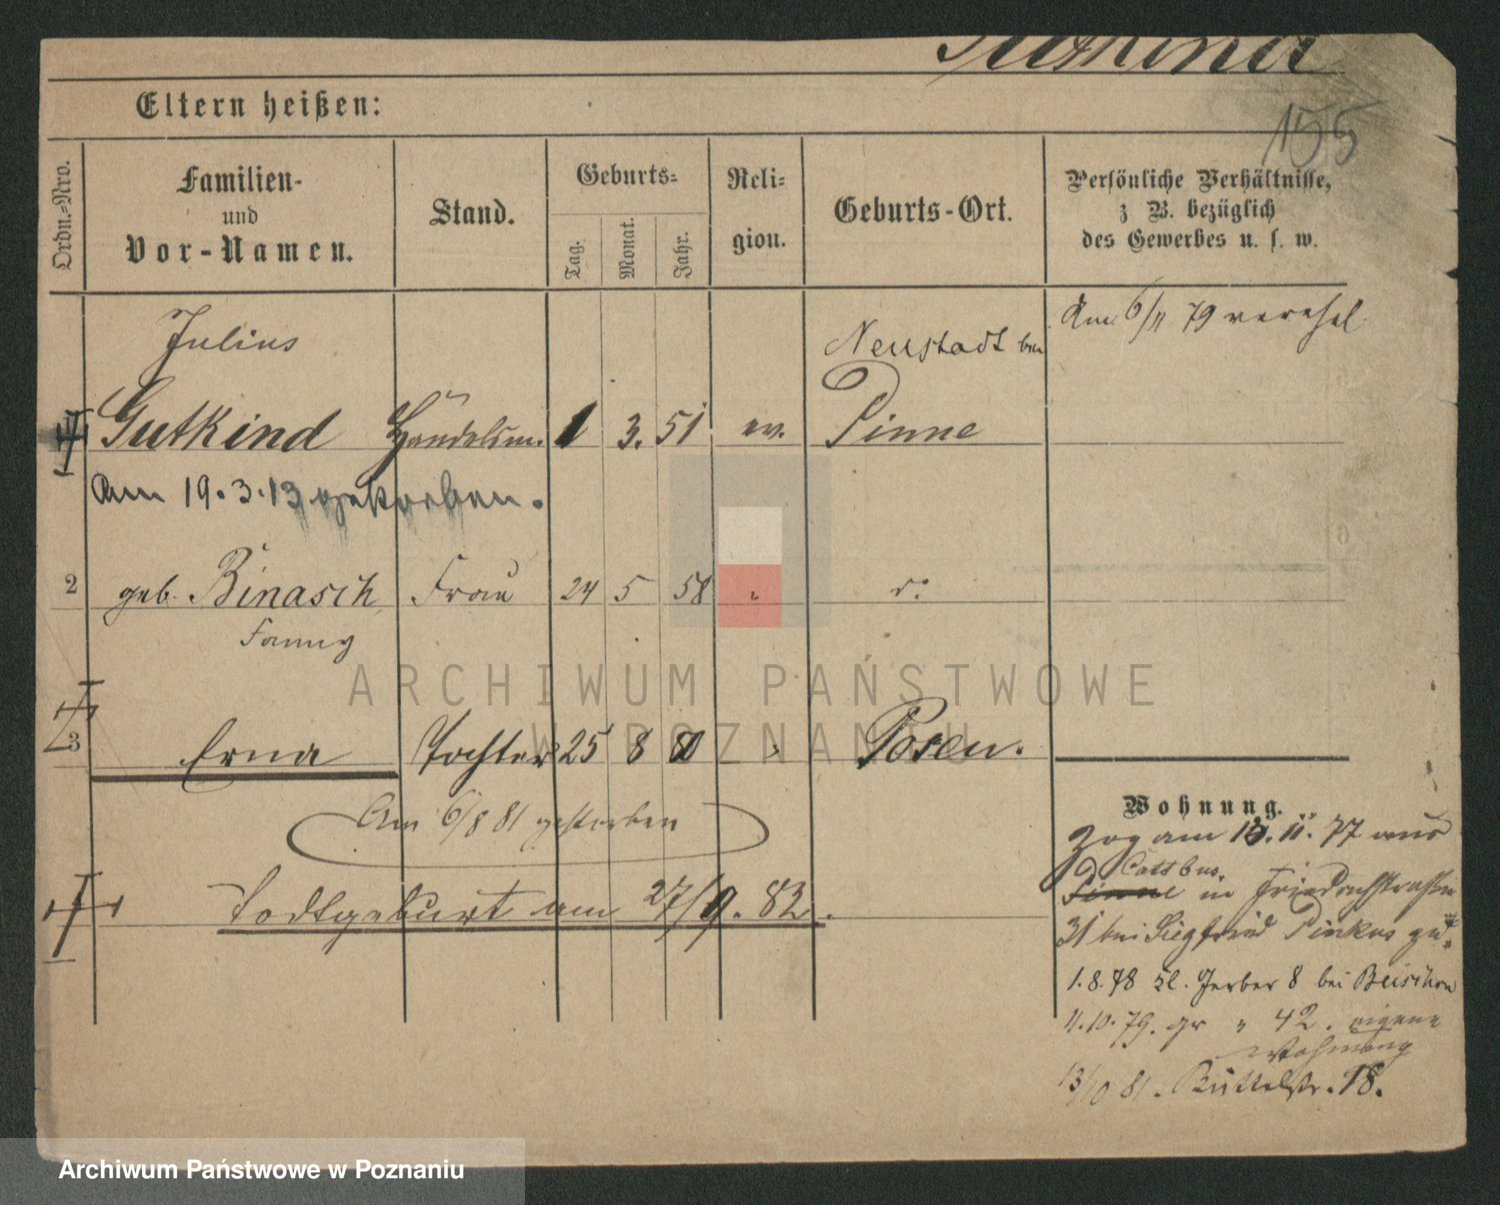 Gutkind
155
Eltern heißen:
Ordn.-Nro.
Familien-
und
Vor-Namen.
Stand.
Geburts-
Tag.
Monat.
Jahr.
Reli-
gion.
Geburts-Ort.
Persönliche Verhältnisse,
z B. bezüglich
des Gewerbes u. s. w.
Julius
Gutkind Händelsm. 1 3. 51
Neustadt bei
Pinne
Am 6/11 79 verehel
Am 19.3.13 gestorben.
2 geb. Binasch Frau 24 5 58 " d:
Fanny
3 Erna Tochter 25 8 80 " Posen.
Am 6/8 81 gestorben
Todtgeburt am 27/9. 82.
Wohnung.
Zog am 13. 11. 77 aus
Cottbus
Pinne in Friedrichstraße
31 bei Siegfried Pinkus zu.
1.8.78 kl. Gerber 8 bei
11.10.79. gr " 42. eigene
Wohnung
13/10 81. Büttelstr. 18.
ARCHIWUM PAŃSTWOWE
W POZNANIU
Archiwum Państwowe w Poznaniu